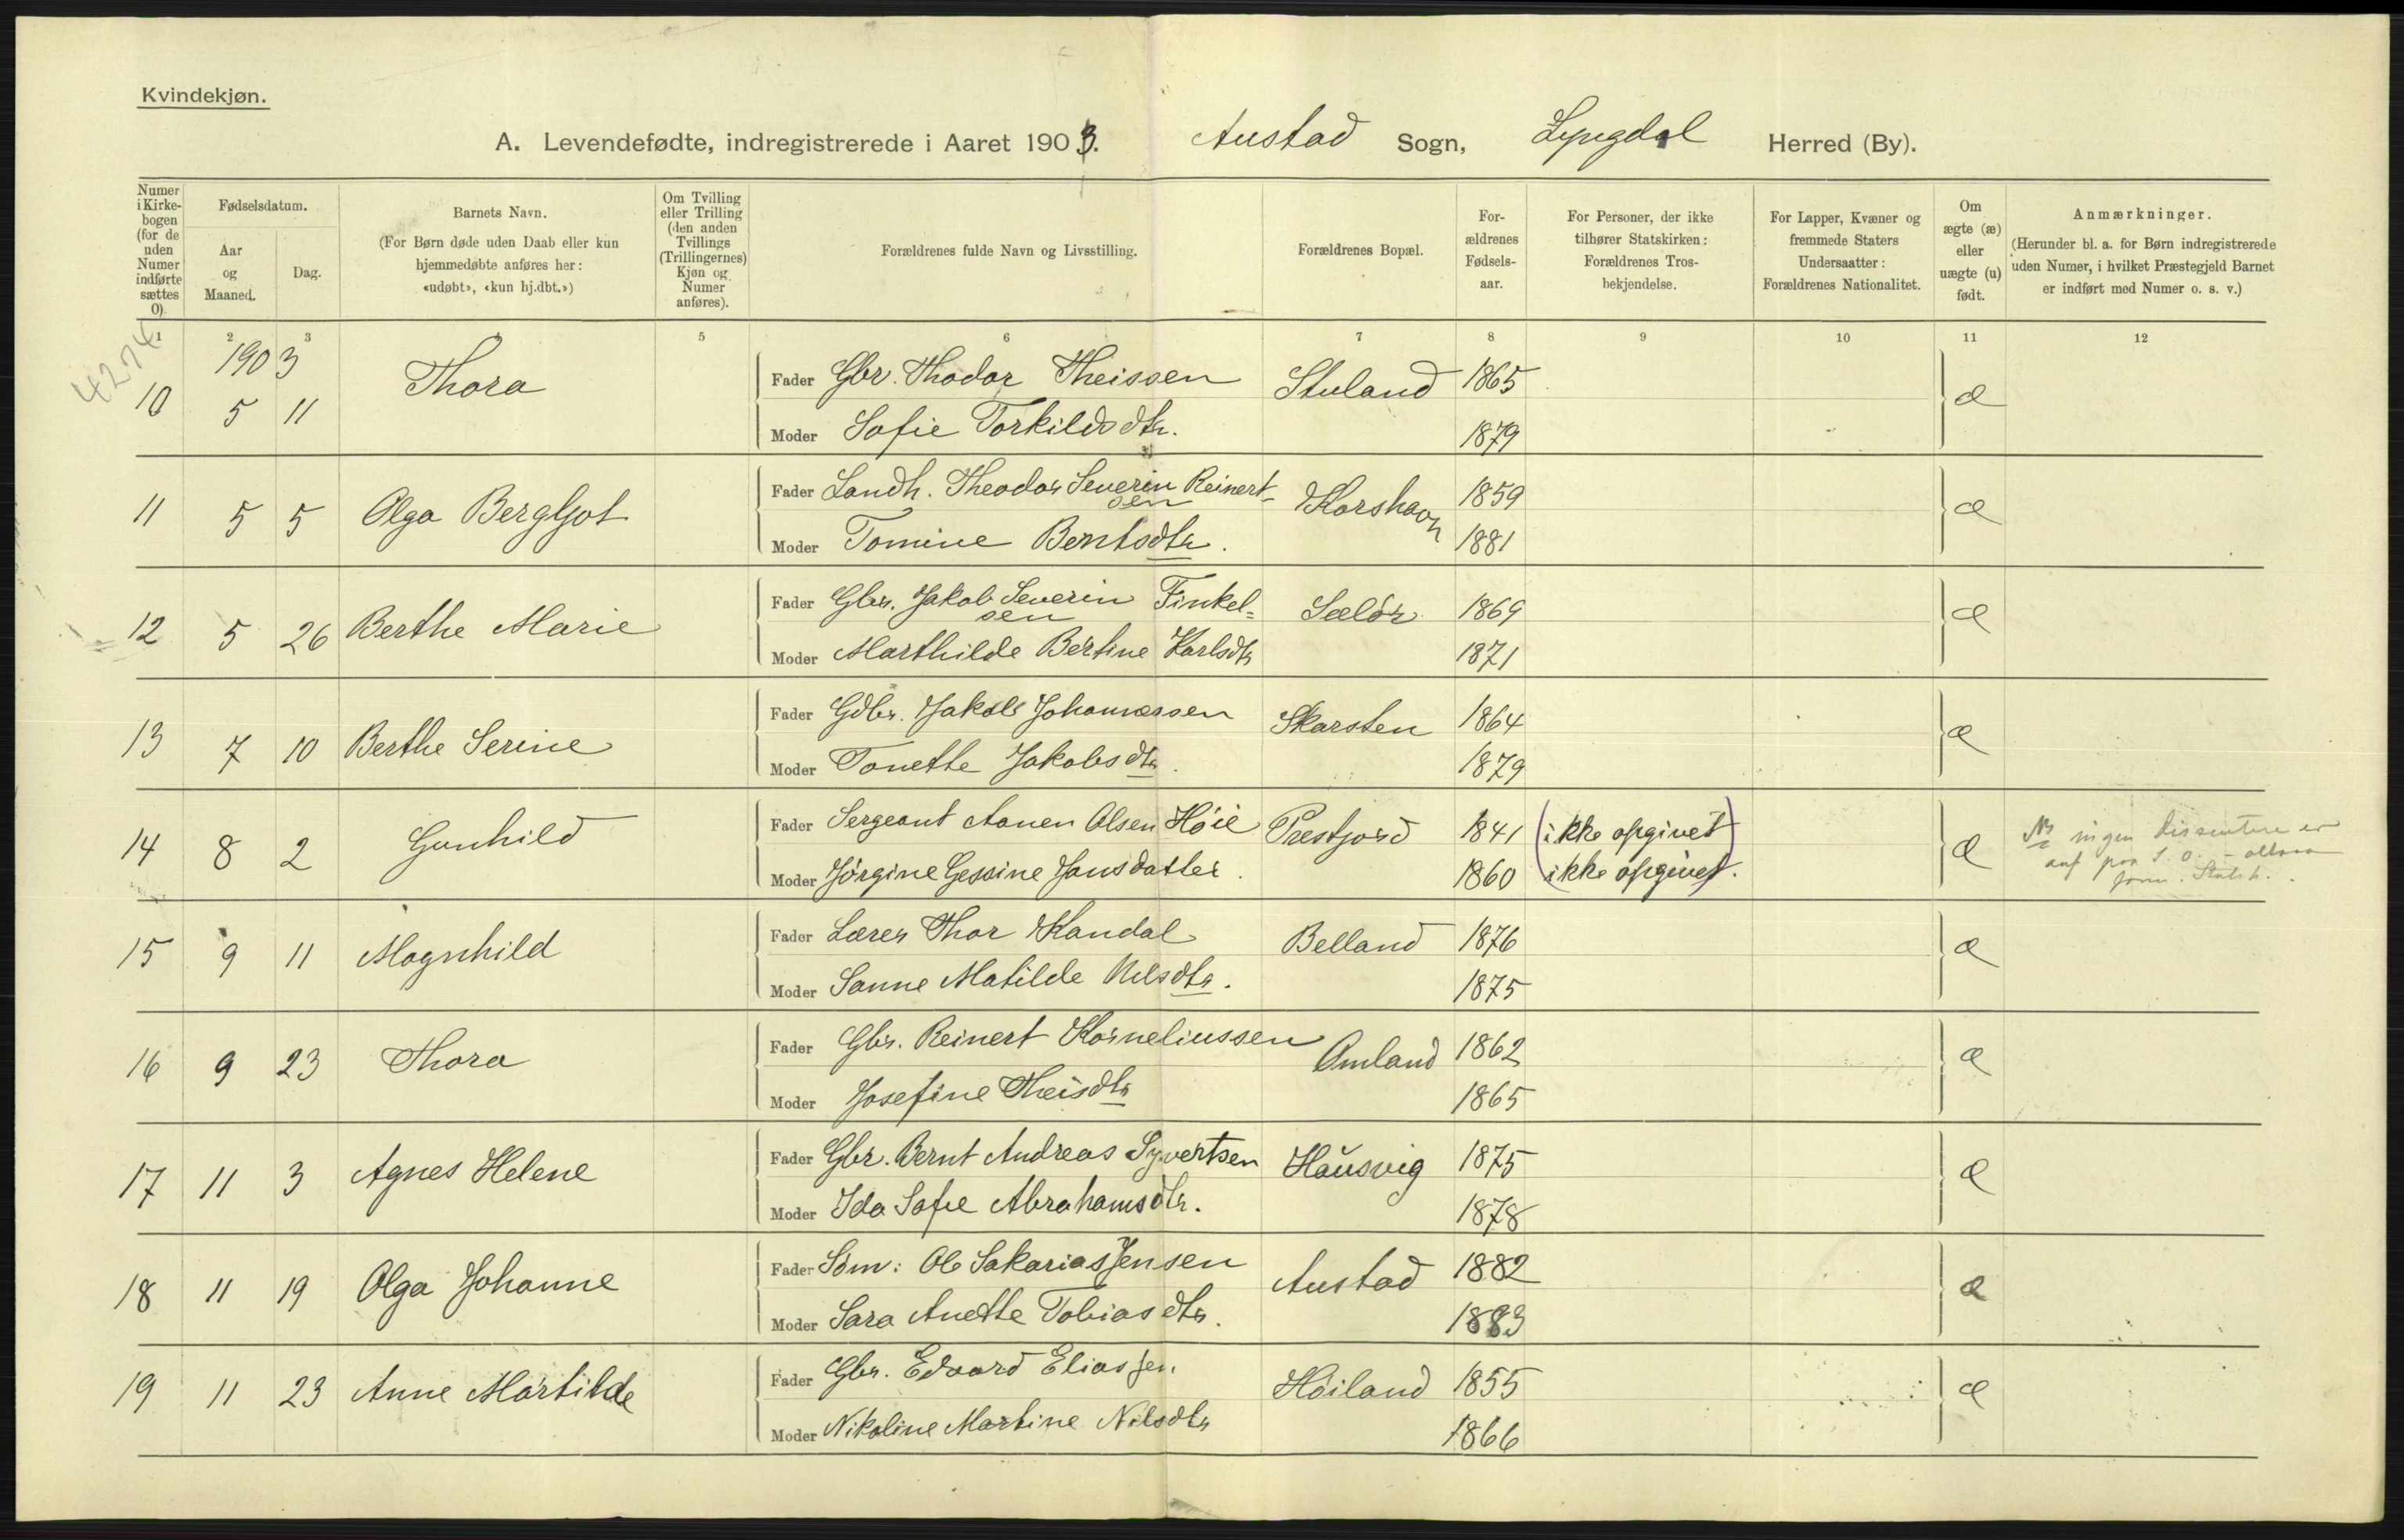 Kvindekjøn.
A. Levendefødte, indregistrerede i Aaret 1903. Austad Sogn, Lyngdal Herred (By).
Numer i Kirkebogen (for de uden Numer indførte sættes 0).
Fødselsdatum.
Aar og Maaned.
Dag.
Barnets Navn.
(For Børn døde uden Daab eller kun hjemmedøbte anføres her: «udøbt», «kun hj.dbt.»)
Om Tvilling eller Trilling (den anden Tvillings (Trillingernes) Kjøn og Numer anføres).
Forældrenes fulde Navn og Livsstilling.
Forældrenes Bopæl.
Forældrenes Fødselsaar.
For Personer, der ikke tilhører Statskirken: Forældrenes Trosbekjendelse.
For Lapper, Kvæner og fremmede Staters Undersaatter: Forældrenes Nationalitet.
Om ægte (æ) eller uægte (u) født.
Anmærkninger.
(Herunder bl. a. for Børn indregistrerede uden Numer, i hvilket Præstegjeld Barnet er indført med Numer o. s. v.)
1 2 3 4 5 6 7 8 9 10 11 12
4274
1903
10 5 11 Thora Fader Gbr. Thodor Theissen Stuland 1865 æ
Moder Sofie Torkildsdtr. 1879
11 5 5 Olga Bergljot Fader Landh. Theodor Severin Reinertsen Korshavn 1859 æ
Moder Tomine Berntsdtr. 1881
12 5 26 Berthe Marie Fader Gbr. Jakob Severin Finkel=sen Sælør 1869 æ
Moder Marthilde Bertine Karlsdtr 1871
13 7 10 Berthe Serine Fader Gdbr. Jakob Johannessen Skarsten 1864 æ
Moder Tonette Jakobsdtr. 1879
14 8 2 Gunhild Fader Sergeant Aanen Olsen Høie Prestjord 1841 (ikke opgivet) æ
Moder Jørgine Gessine Jansdatter. 1860 (ikke opgivet).
15 9 11 Magnhild Fader Lærer Thor Kandal Belland 1876 æ
Moder Sanne Matilde Nilsdtr. 1875
16 9 23 Thora Fader Gbr. Reinert Korneliussen Omland 1862 æ
Moder Josefine Theisdtr 1865
17 11 3 Agnes Helene Fader Gbr. Bernt Andreas Syvertsen Hausvig 1875 æ
Moder Ida Sofie Abrahamsdtr. 1878
18 11 19 Olga Johanne Fader Søm: Ole Sakarias Jensen Austad 1882 æ
Moder Sara Anette Tobiasdtr. 1883
19 11 23 Anne Martilde Fader Gbr. Edvard Eliassen Høiland 1855 æ
Moder Nikoline Martine Nilsdtr 1866